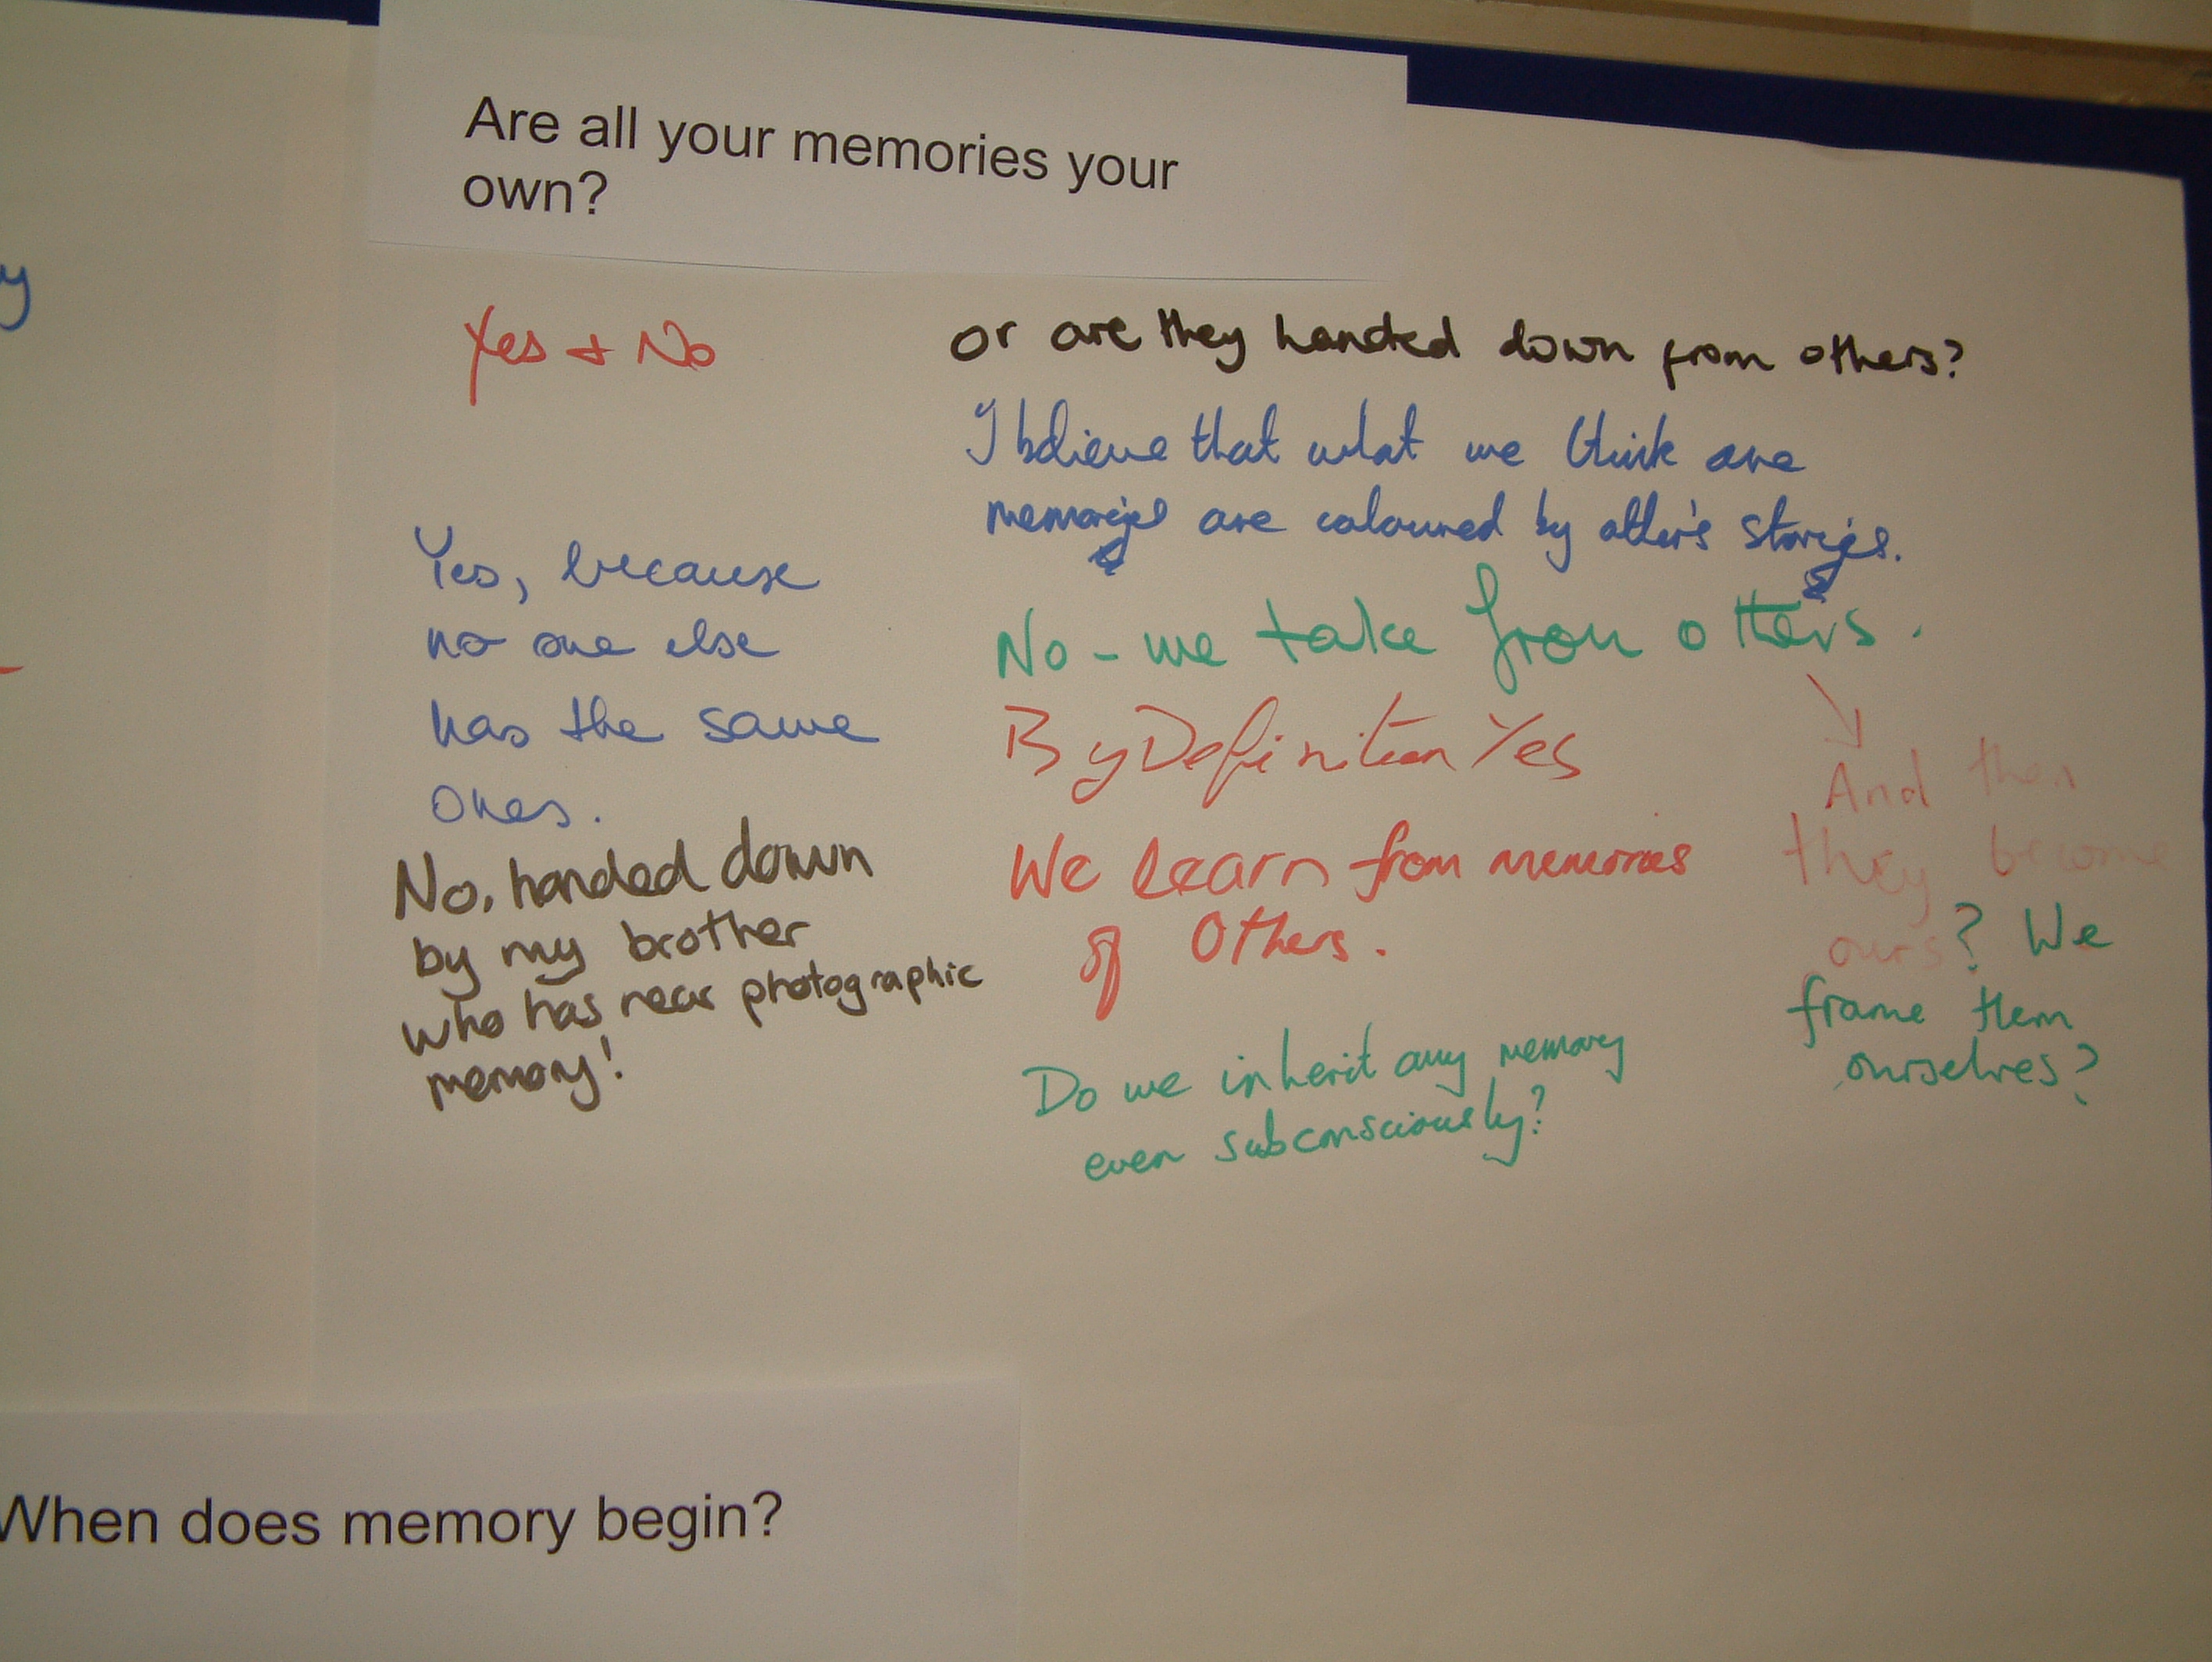 Are all your memories your
own?
Yes + No
Yes, because
no one else
has the same
ones.
No, handed down
by my brother
who has near photographic
memory!
or are they handed down from others?
I believe that what we think are
memories are coloured by other's stories.
No - we take from others.
By Definition Yes
We learn from memories
of others.
Do we inherit any memory
even subconsciously?
And then
they become
ours? We
frame them
ourselves?
y
When does memory begin?